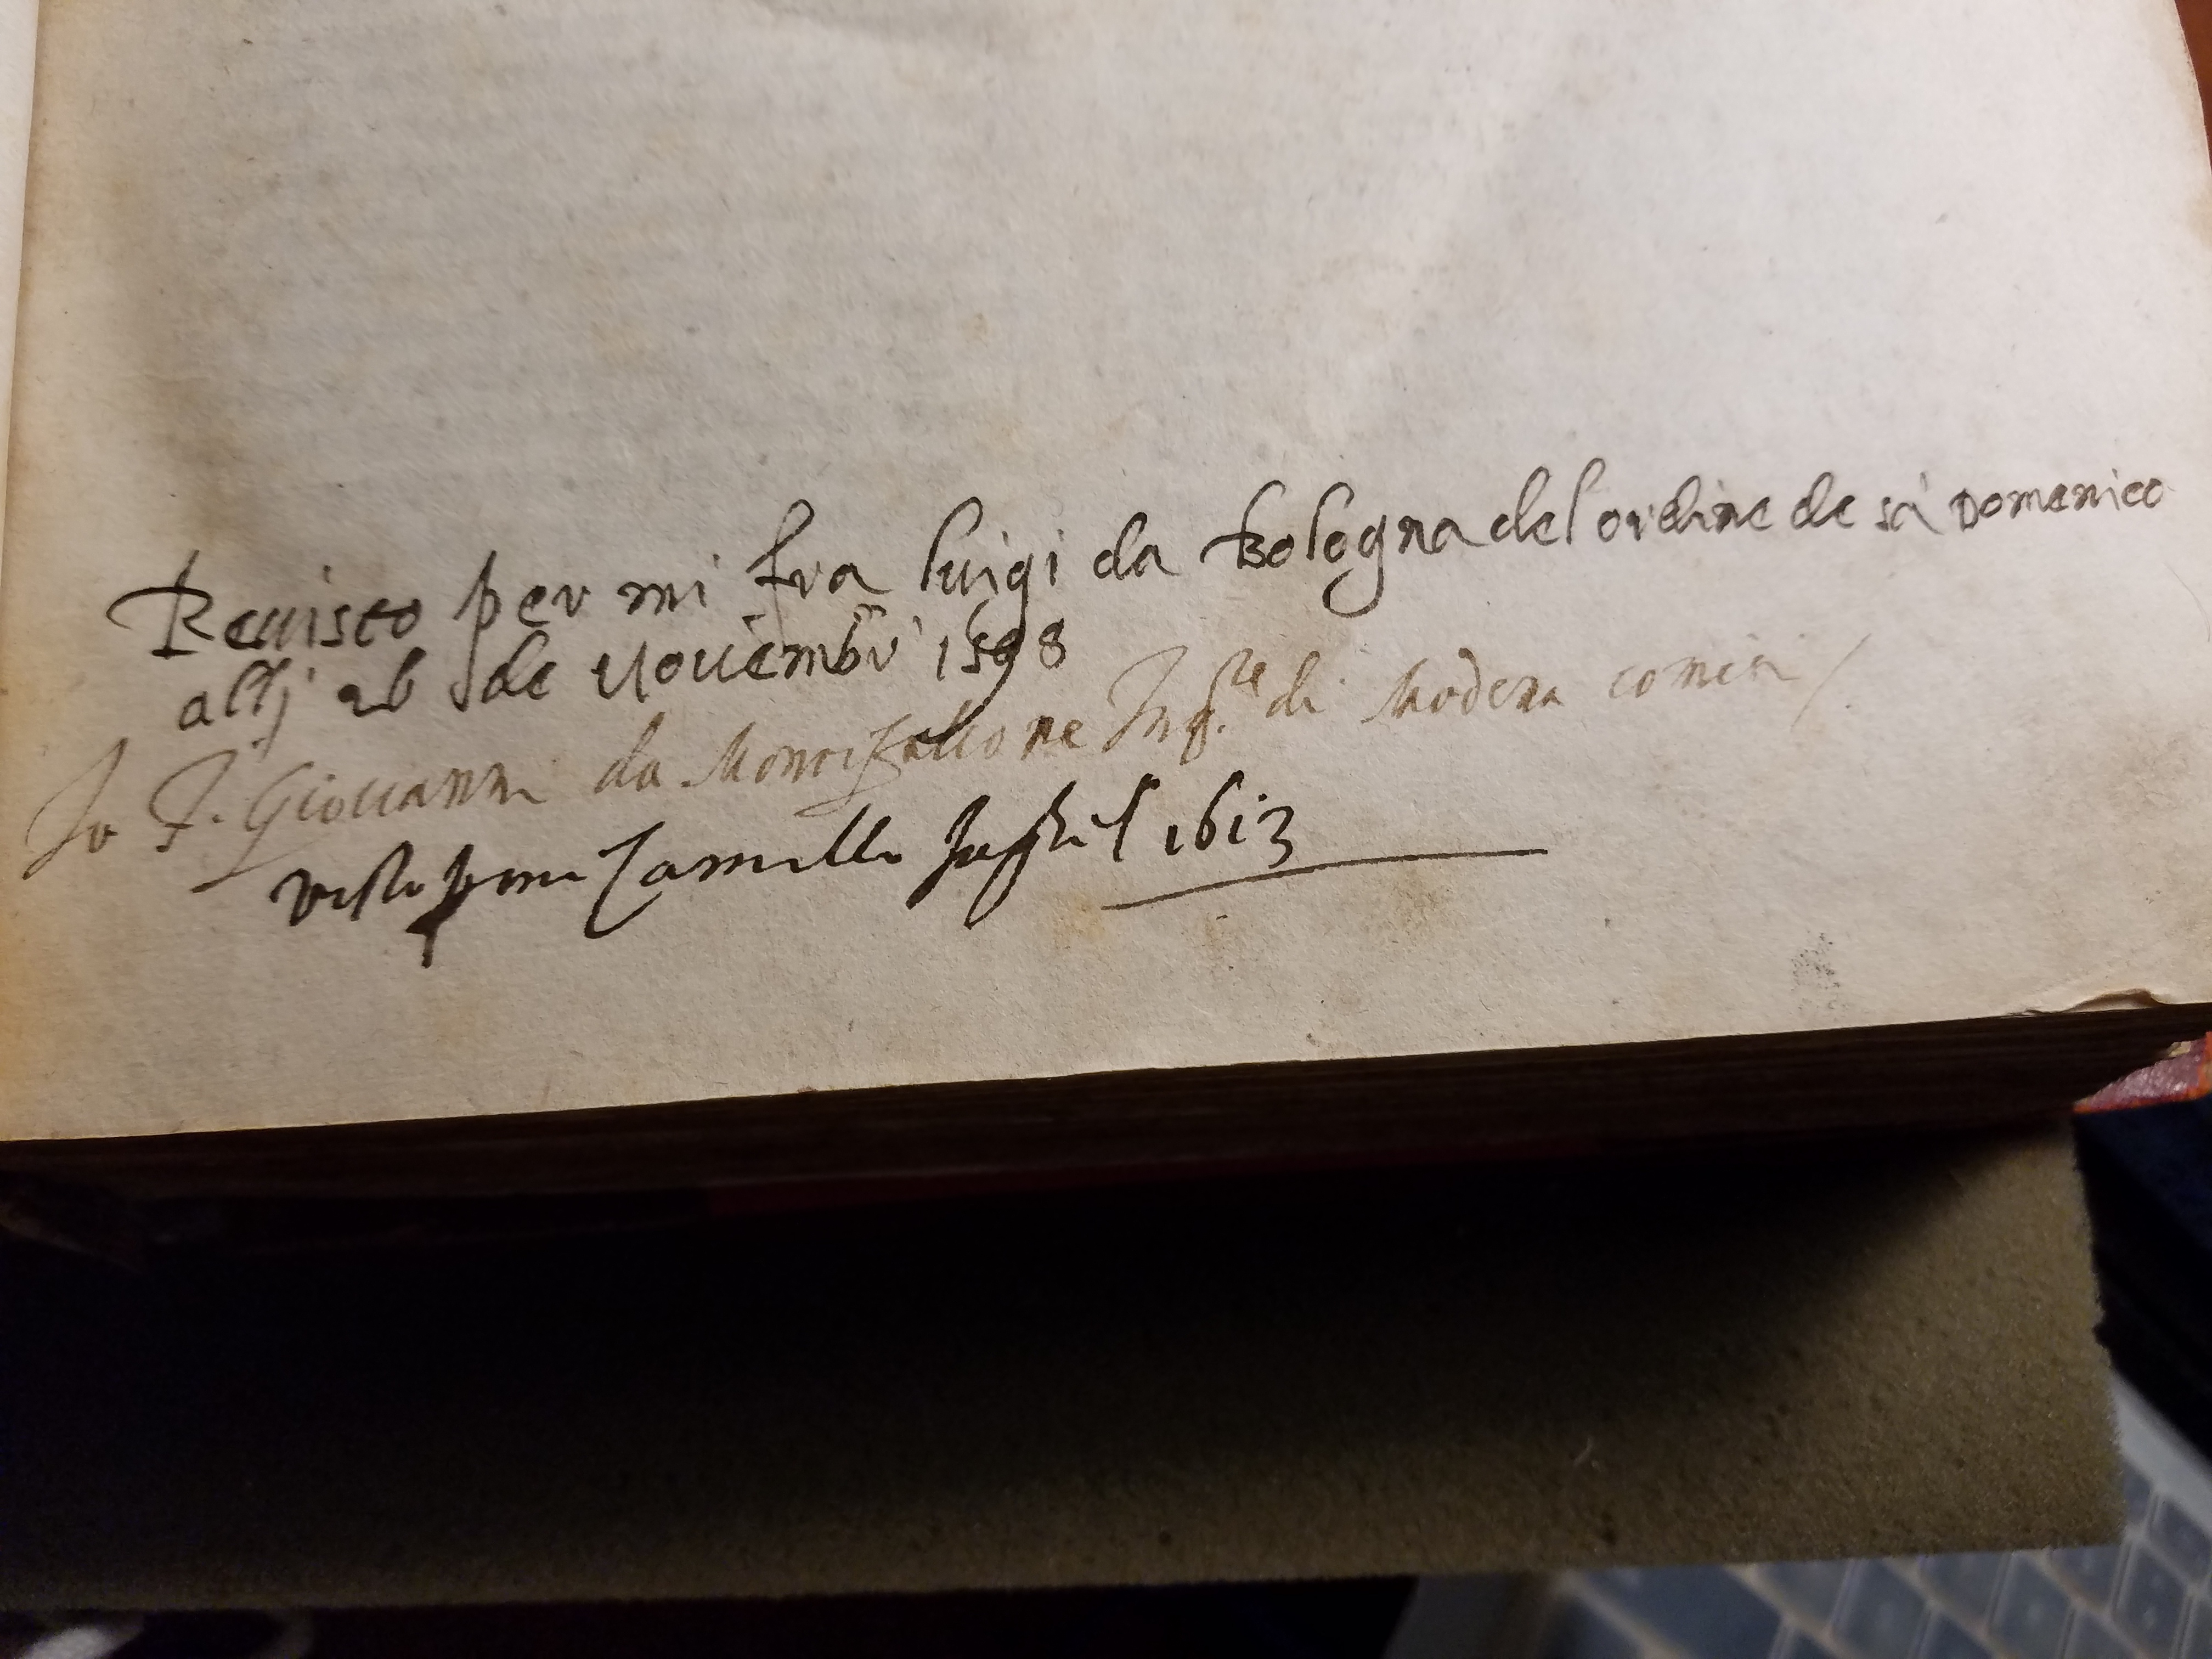 Reuisto per mi fra luigi da Bologna del ordine de sã Domenico
allj 26 de Nouembr 1598
Io F. Giouanni da Montefalcone Inq.re di Modena concessi /.
visto per mi Camillo Jaghel 1613